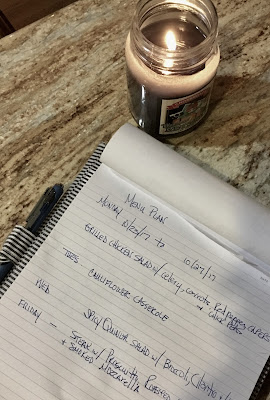 Menu Plan
Monday 10/23/17 to 10/27/17
Grilled Chicken Salad w/ Celery, Carrots, Red Peppers, Capers
+ Chick Peas
Tues Cauliflower Casserole
Wed Spicy Quinoa Salad w/ Broccoli, Cilantro +
Friday - Steak w/ Prosciutto, Roasted
+ Smoked Mozzarella